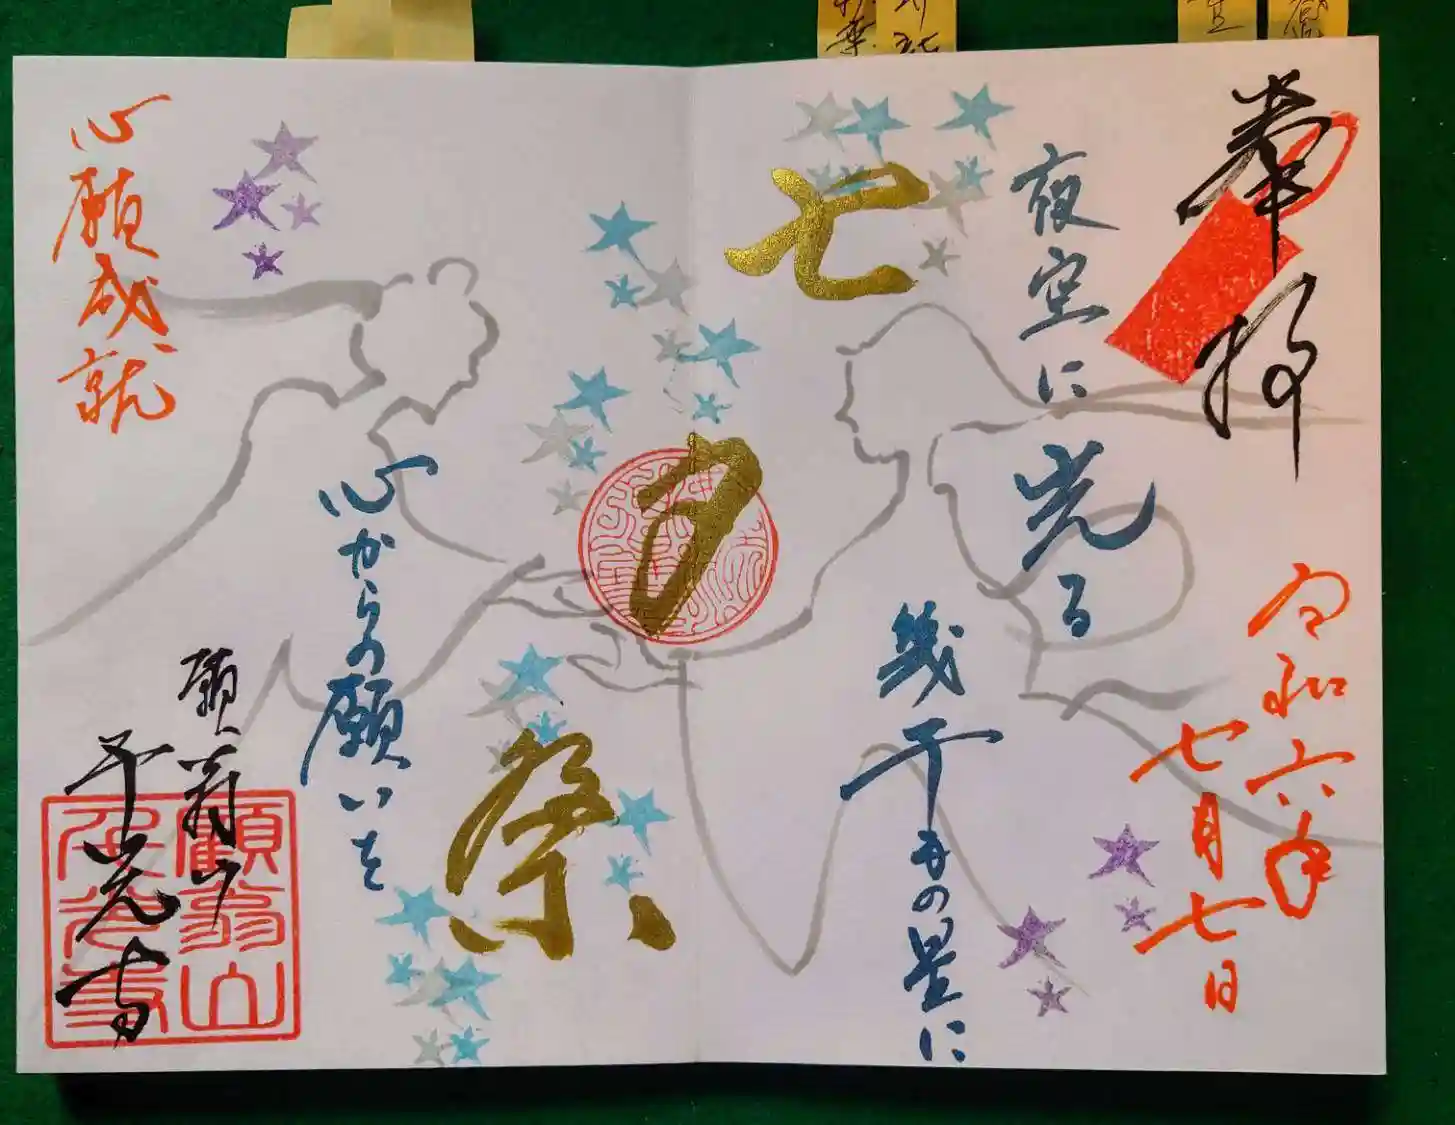 奉拝
令和六年
七月七日
夜空に光る
幾千もの星に
七夕祭
心からの願いを
心願成就
願翁山
願翁山